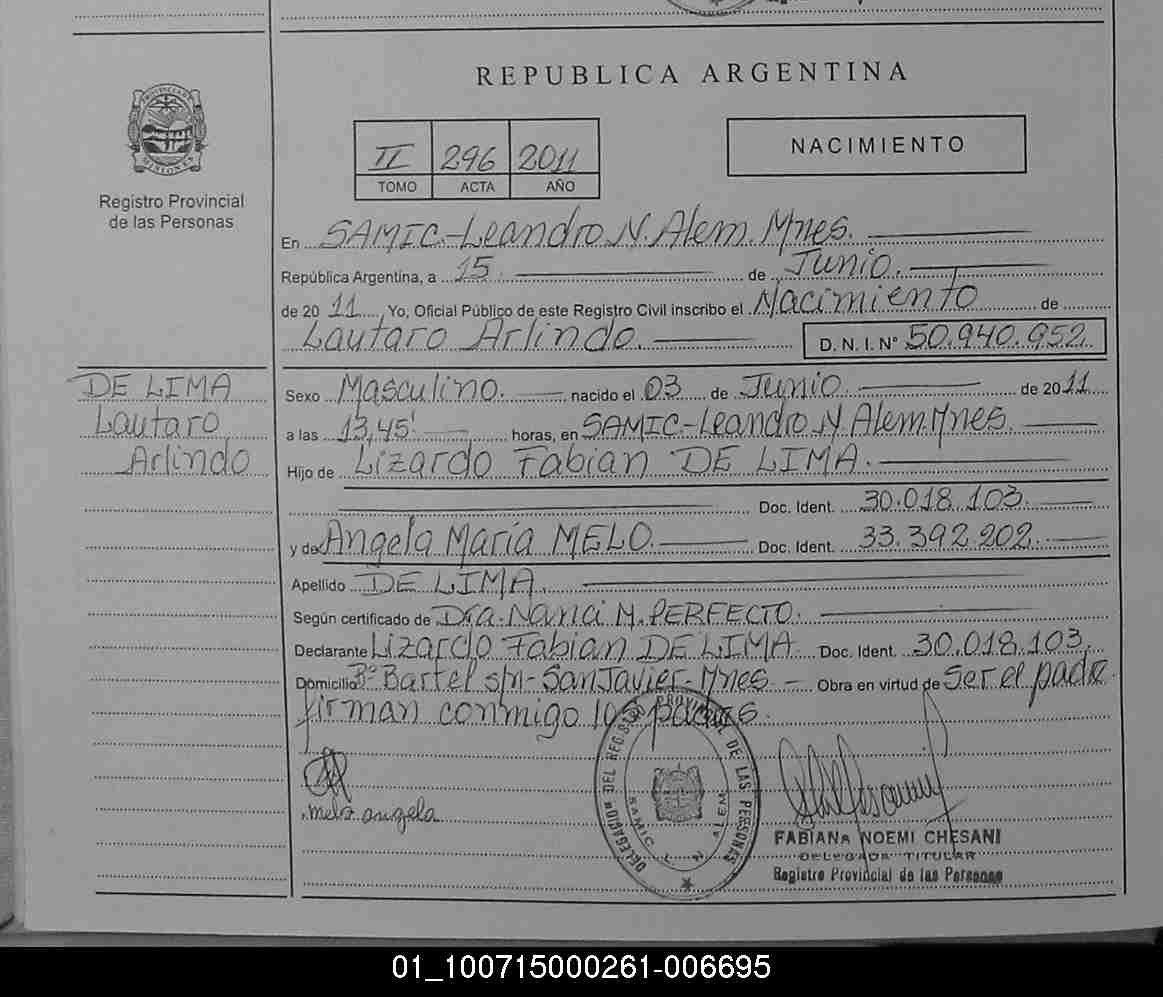 REPUBLICA ARGENTINA
PROVINCIA DE MISIONES
Registro Provincial
de las Personas
II 296 2011
TOMO ACTA AÑO
NACIMIENTO
En SAMIC.-Leandro N. Alem. Mnes.
República Argentina, a 15 de Junio.
de 2011 Yo, Oficial Público de este Registro Civil inscribo el Nacimiento de
Lautaro Arlindo. D. N. I. N° 50.940.952
DE LIMA
Lautaro
Arlindo
Sexo Masculino. nacido el 03 de Junio de 2011
a las 13,45' horas, en SAMIC.-Leandro N. Alem. Mnes.
Hijo de Lizardo Fabian DE LIMA.
Doc. Ident. 30.018.103.
y de Angela María MELO. Doc. Ident. 33.392.202.
Apellido DE LIMA.
Según certificado de Dra. Nanci M. PERFECTO.
Declarante Lizardo Fabian DE LIMA Doc. Ident. 30.018.103,
Domicilio B° Bartel s/n - San Javier - Mnes - Obra en virtud de Ser el padre
firman conmigo los padres.
melo angela
DELEGACION DEL REGISTRO PROVINCIAL DE LAS PERSONAS
SAMIC L. N. ALEM
FABIANA NOEMI CHESANI
DELEGADA TITULAR
Registro Provincial de las Personas
01_100715000261-006695